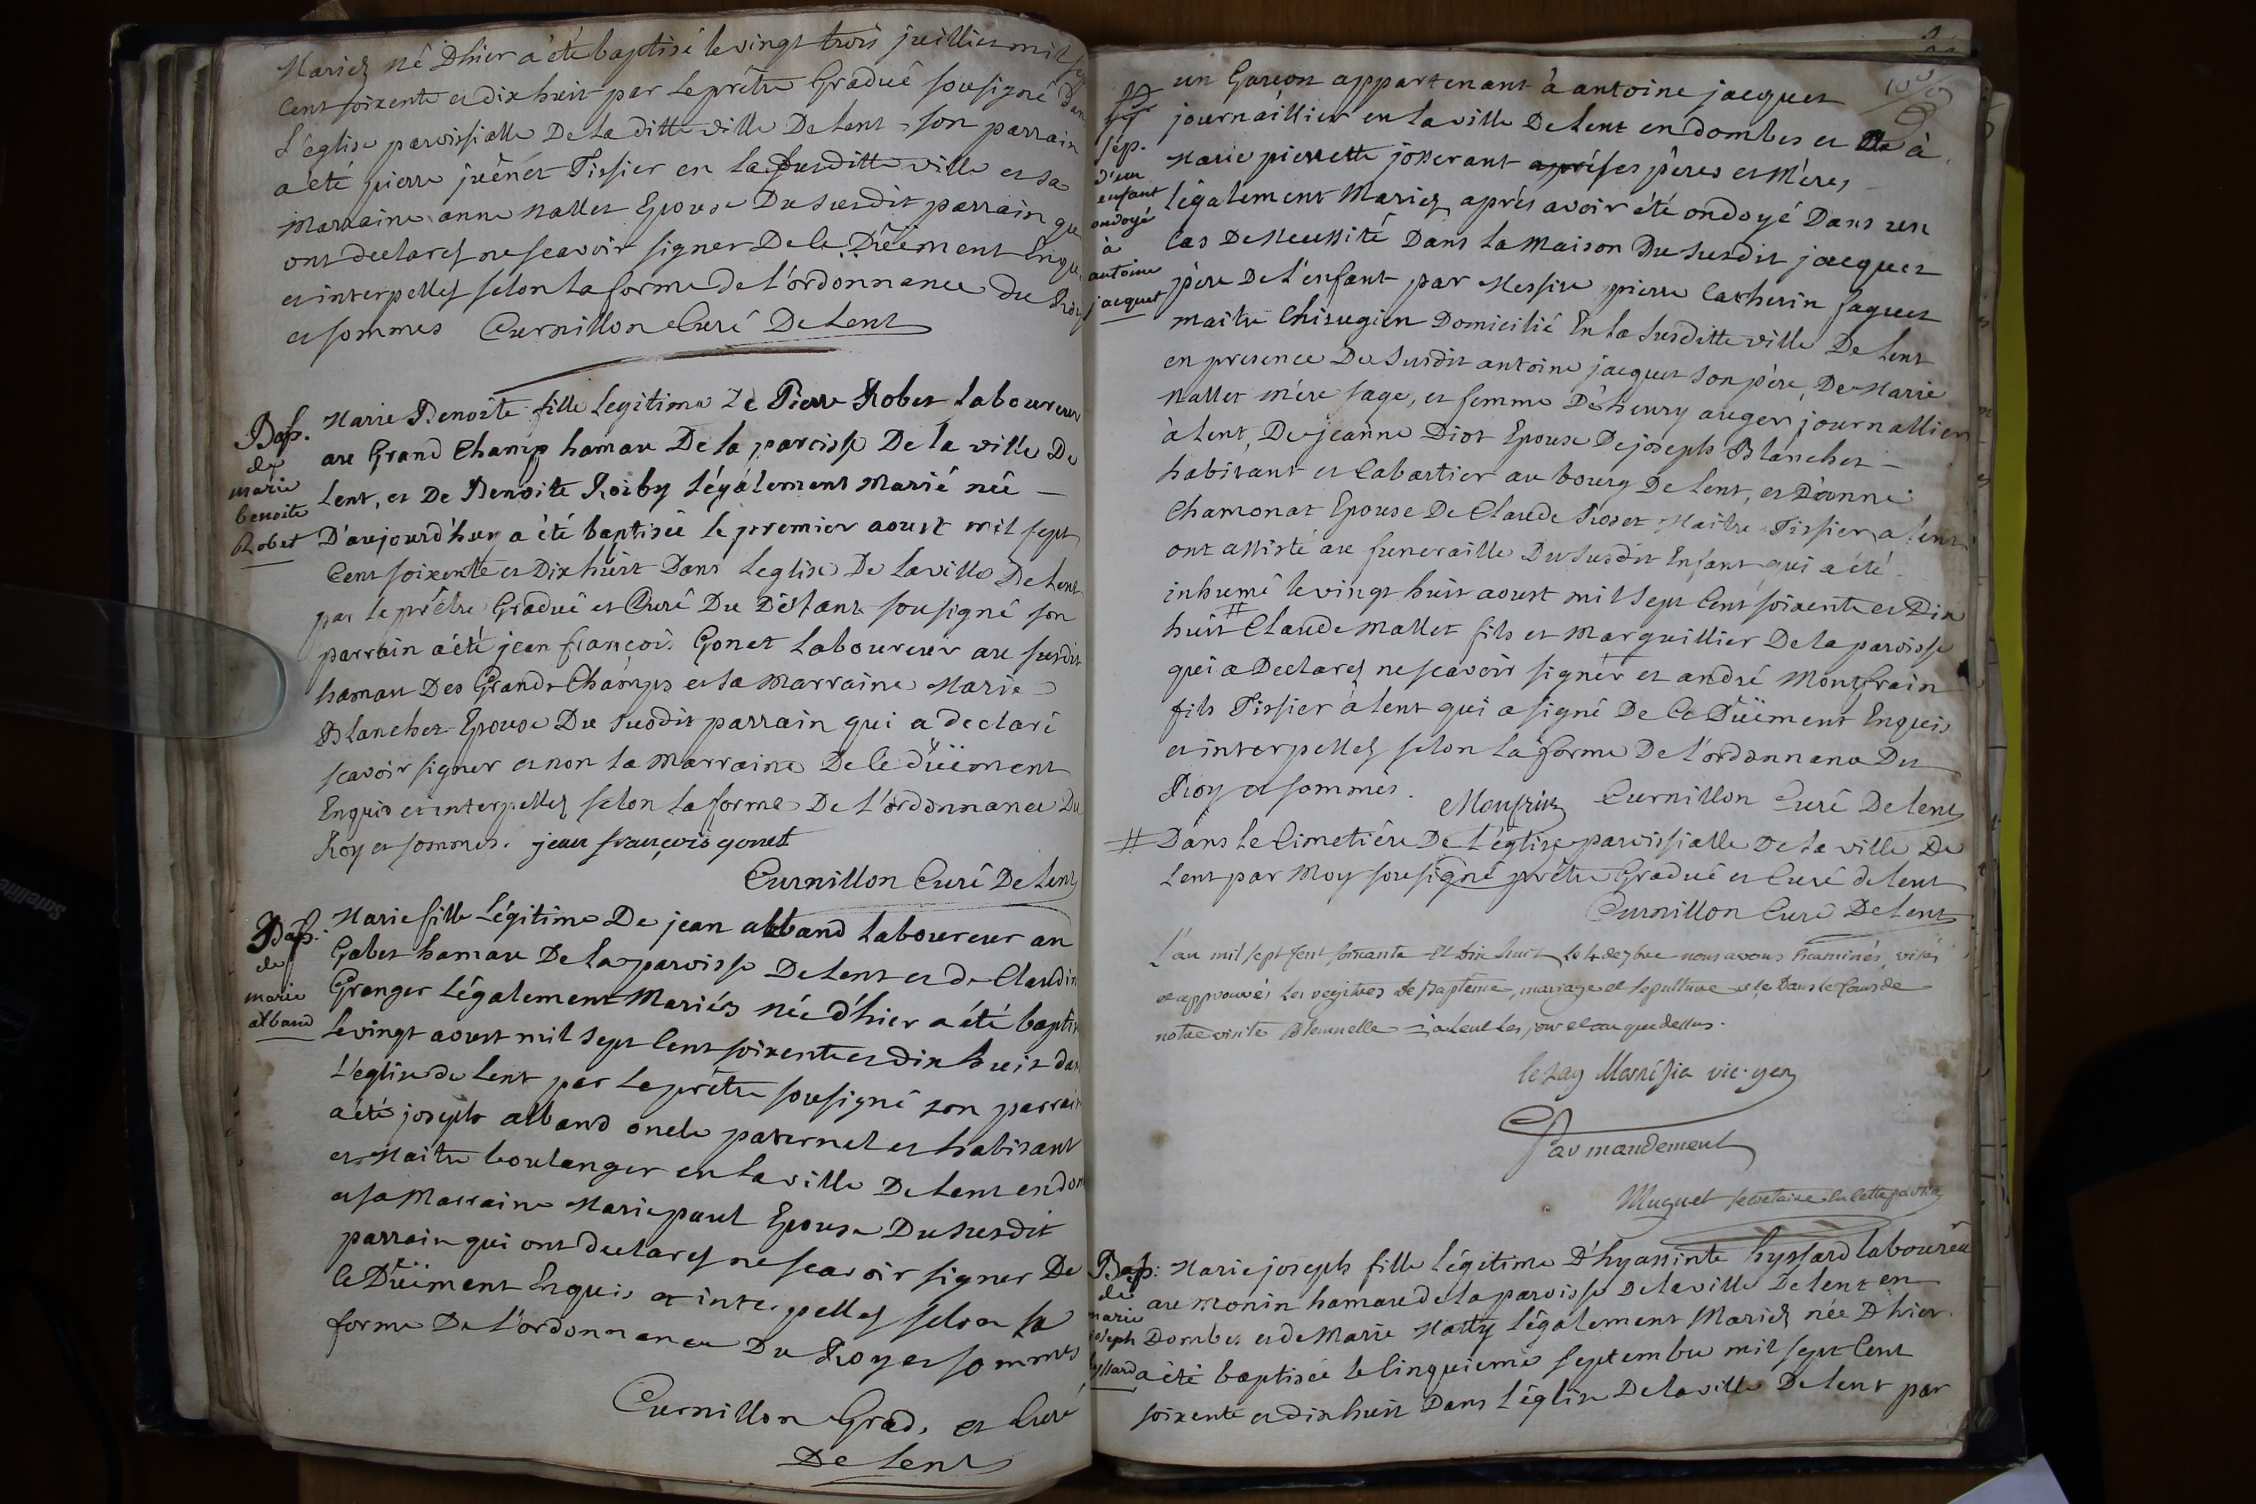 Mariez né Dhier a été baptisé le vingt trois juillier mil
Cent soixente et dix huit par Le prêtre Gradué sousigné
L'église paroissialle De La ditte ville De Lent son parrain
a été pierre Tissier en La susditte ville et sa
Marraine anne Mallet Epouse Du susdit parrain
ont declarez ne scavoir signer De Ce Düement
et interpellez selon La forme de L'ordonnance du
et sommes Curnillon Curé De Lent
Bap.
de
marie
benoite
Robet
Marie Benoite fille Legitime De Pierre Robet Laboureur
au Grand Champ hamau De La paroisse De la ville De
Lent, et De Benoite Roiby Légalement Marié née
D'aujourd'huy a été baptisée le premier aoust mil sept
Cent soixente et Dix huit Dans Leglise De La ville De Lent
par le prêtre Gradué et Curé Du Déstant sousigné son
parrain a été jean françois Gonet Laboureur au susdit
hamau Des Grands Champs et sa Marraine Marie
Blanchet Epouse Du susdit parrain qui a declaré
scavoir signer et non la Marraine De Ce düement
Enquis et interpellez selon La forme De L'ordonnance Du
Roy et sommes. jean françois gonet
Curnillon Curé De Lent
Bap.
de
marie
alband
Marie fille Légitime De jean alband Laboureur au
Gabet hamau De La paroisse De Lent et de
Granger Légalement Mariés née d'hier a été
Le vingt aoust mil sept Cent soixente et dix huit
L'église de Lent par Le prêtre sousigné son
a été joseph alband oncle paternel et habitant
et Maitre boulanger en La ville De Lent en
et sa Marraine Marie paul Epouse Du susdit
parrain qui ont declarez ne scavoir signer De
Ce Düement Enquis et interpellez selon La
forme De L'ordonnance Du Roy et sommes
Curnillon Grad. et Curé
De Lent
un Garcon appartenant à antoine jacquet
Sep.
d'un
enfant
ondoyé
à
antoine
jacquet
journaillier en La ville De Lent en dombes et à
Marie pierrette josserant ses péres et Méres
légalement Mariez aprés avoir été ondoyé Dans un
Cas De Necessité Dans La Maison Du susdit jacquet
pére De L'enfant par Messire pierre Catherin faguet
maitre Chirugien Domicilié En La susditte ville De Lent
en presence Du susdit antoine jacquet son pére, De Marie
Mallet mére sage, et femme D'henry auger journallier
à Lent, De jeanne Diot Epouse De joseph Blanchet
habitant et Cabartier au bourg De Lent, et D'anne
Chamonat Epouse De Claude Roset Maitre Tissier a Lent
ont assisté au funeraille Du susdit Enfant qui a été
inhumé le vingt huit aoust mil sept Cent soixente et Dix
huit # Claude Mallet fils et Marguillier De La paroisse
qui a Declarez ne scavoir signér et andré Monfrain
fils Tissier à Lent qui a signé De Ce Düement Enquis
et interpellez selon La forme De L'ordonnance Du
Roy et sommes. Curnillon Curé De Lent
# Dans Le Cimetiére De L'église paroissialle De La ville De
Lent par Moy sousigné prêtre Gradué et Curé de Lent
Curnillon Curé De Lent
L'an mil sept cent soixante et dix huit le 4 de 7bre nous avons Examinés, visés
et approuvés les registres de Baptême, mariage et sepulture et ce Dans le Cours de
notre visite à Lent les jour et an que dessus.
vic. gen
Par mandement
Muguet secretaire
Bap:
de
marie
joseph
hyssard
Marie joseph fille Légitime D'hyassinte hyssard Laboureur
au Monin hamau de La paroisse De La ville De Lent en
Dombes et de Marie Matty Légalement Mariez née D'hier
a été baptisée le Cinquiéme septembre mil sept Cent
soixente et dix huit Dans L'église De La ville De Lent par